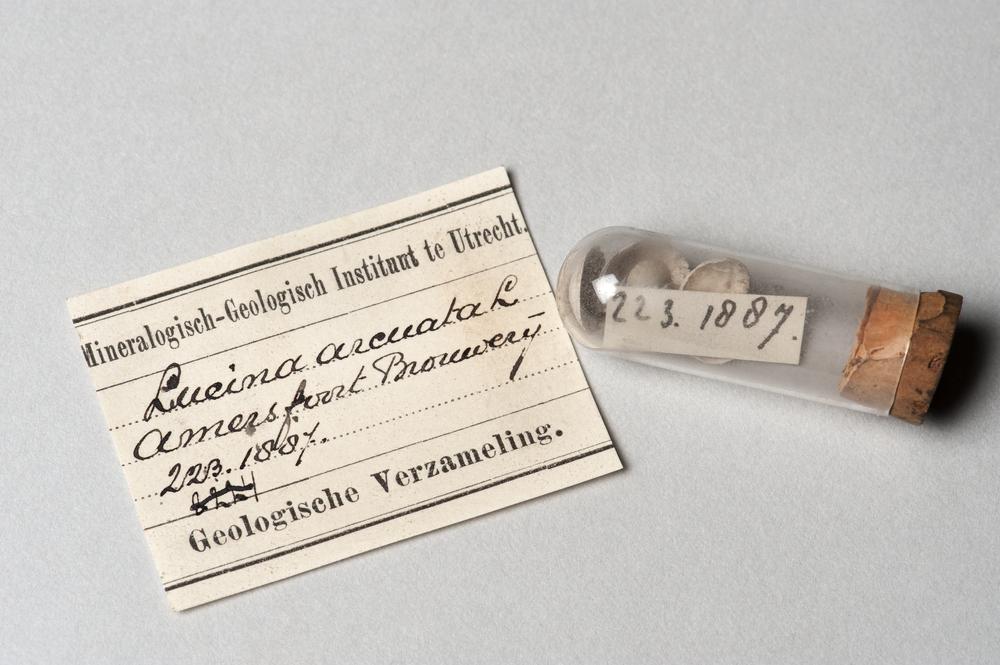 Mineralogisch-Geologisch Instituut te Utrecht.
Lucina arcuata L
Amersfoort Brouwerij
223. 1887.
Geologische Verzameling.
223. 1887.